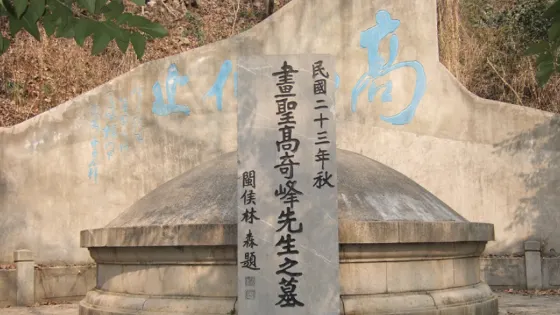 高山仰止
民國二十三年秋
畫聖髙奇峰先生之墓
閩侯林森題